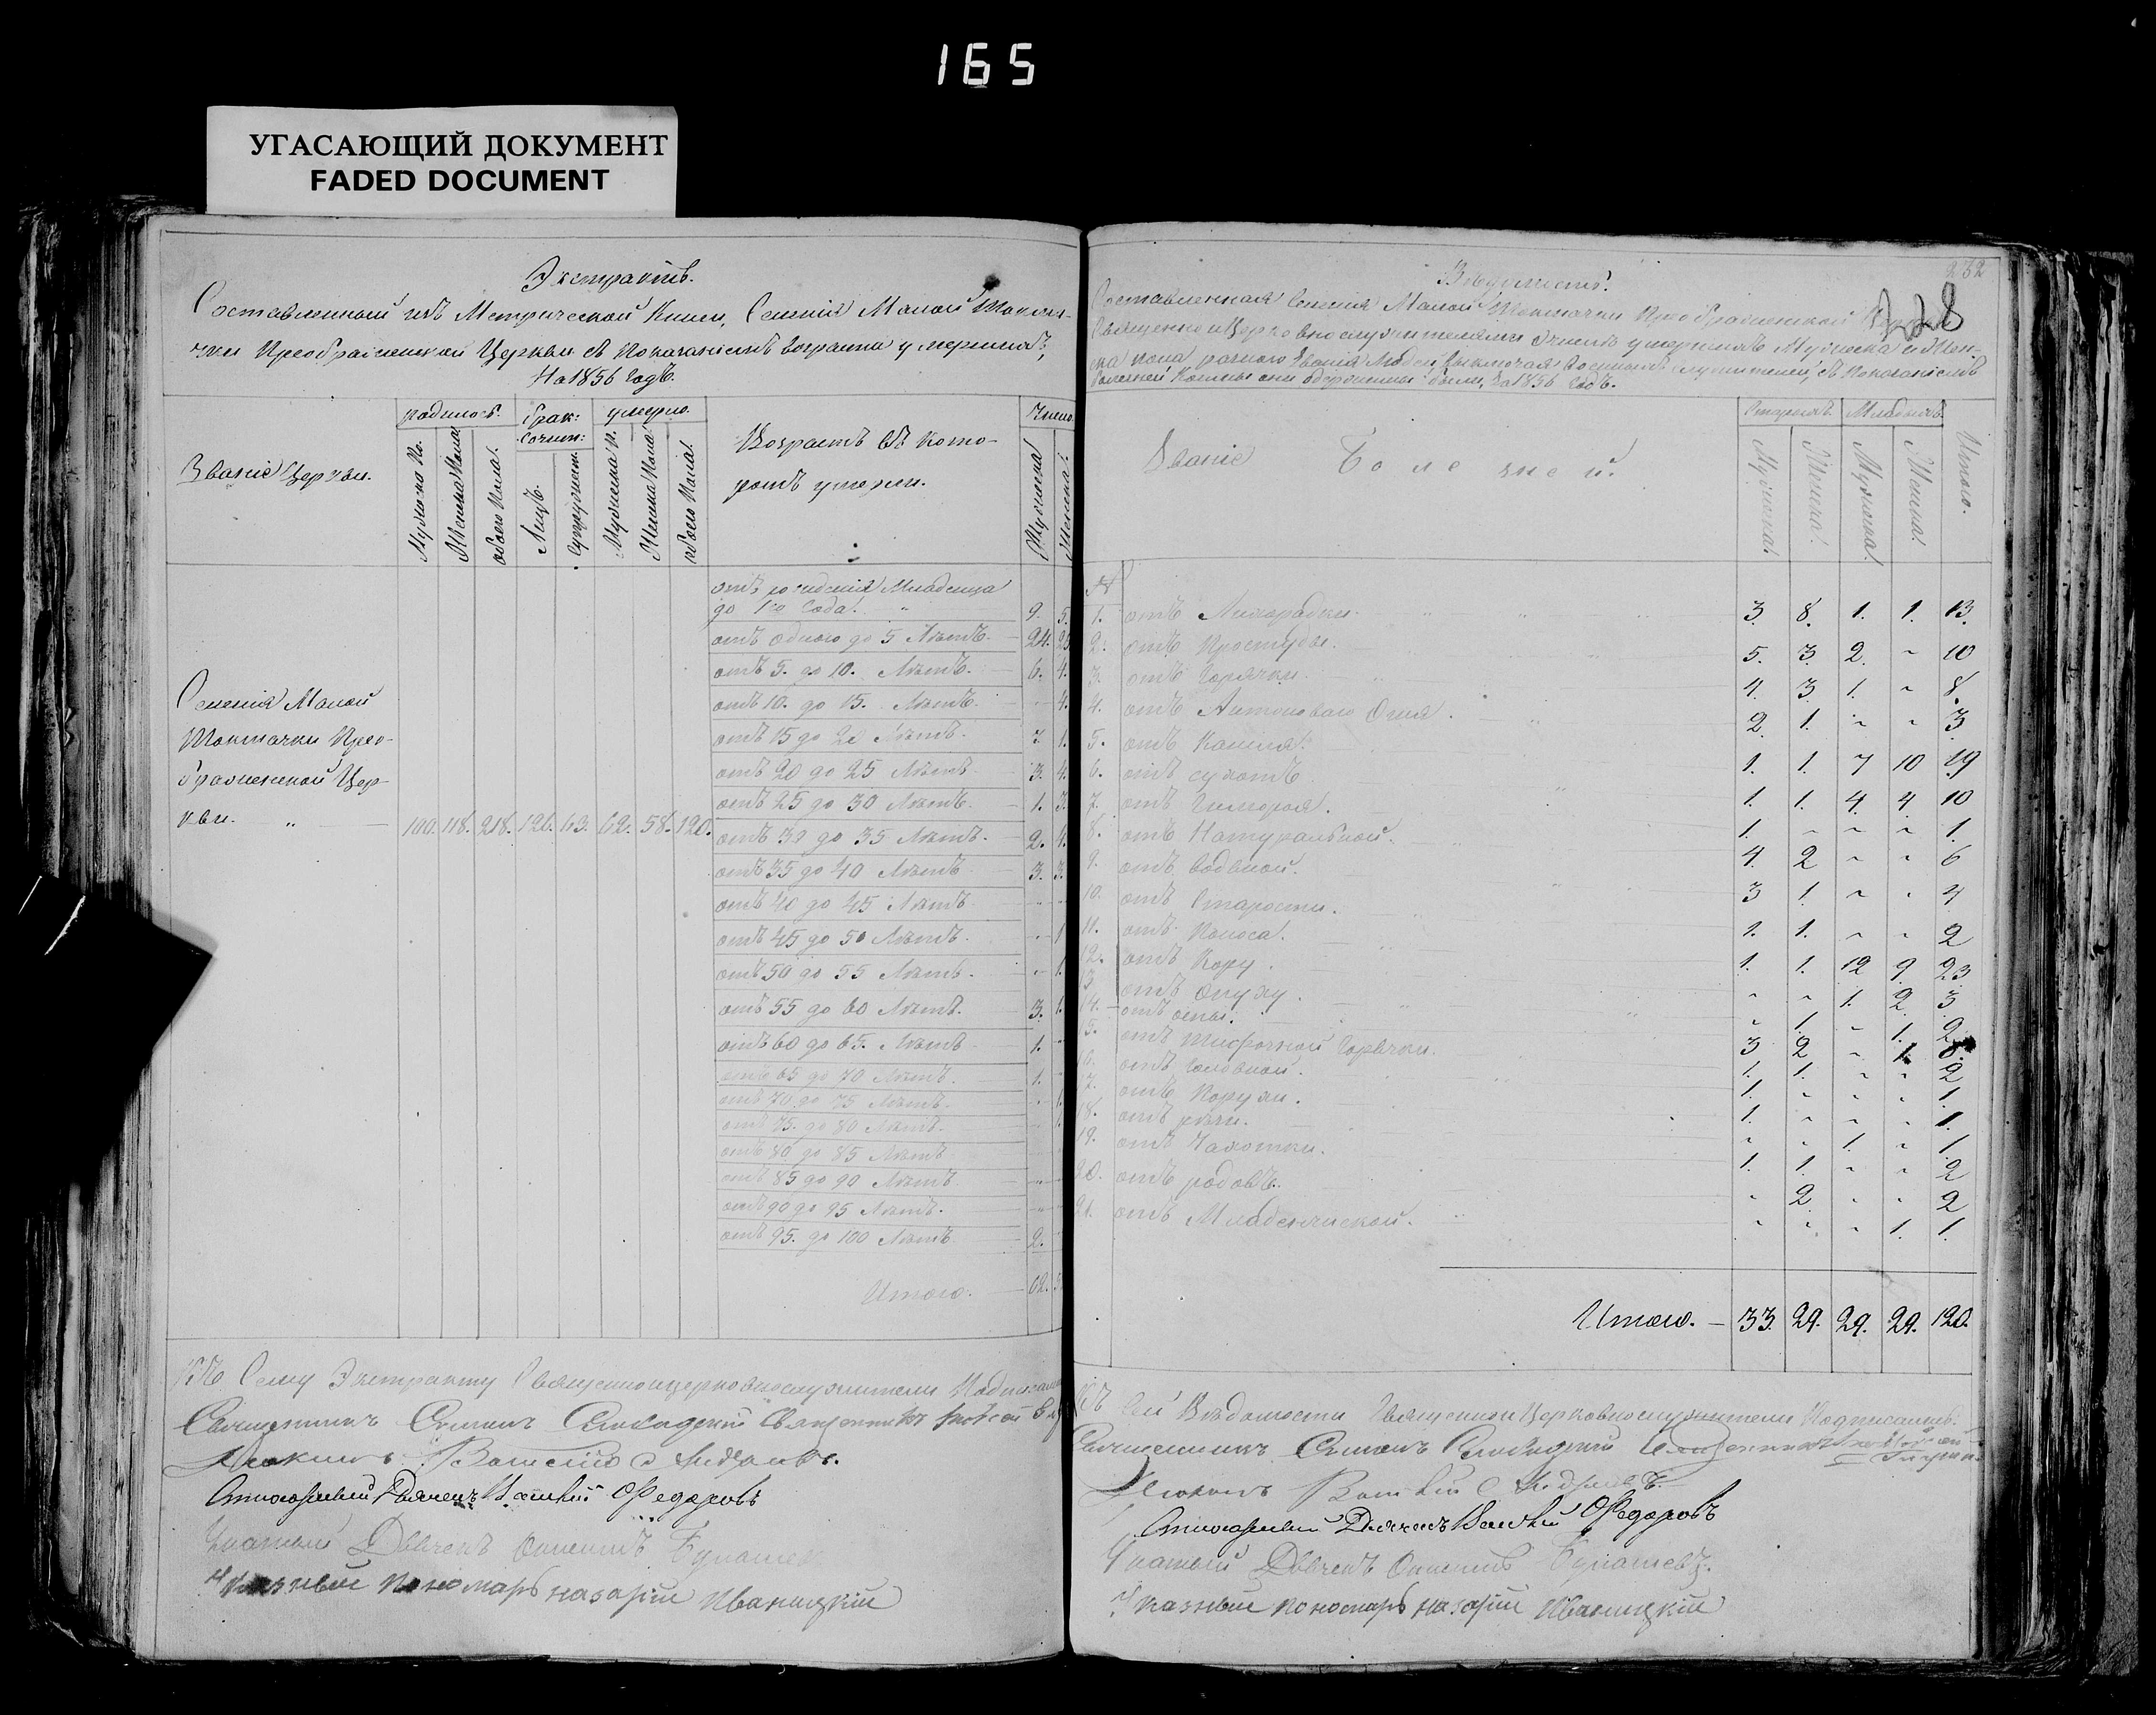 165
УГАСАЮЩИЙ ДОКУМЕНТ
FADED DOCUMENT
Экстрактъ.
Составленный изъ Метрической Книги, Селенія Малой Токмач-
ки Преображенской Церкви съ показаніемъ возраста умершихъ,
На 1856 годъ.
Званіе Церкви.
родилось.
брак:
сочит:
умерло.
Возрастъ въ кото-
ромъ умерли.
Число
Мужеска По.
Женска Пола
обоего Пола.
Лицъ.
Супружест.
Мужеска П.
Женска Пола
обоего Пола.
Мужеска
Женска.
Селенія Малой
Токмачки Прео-
браженской Цер-
кви. „ 100. 118. 218. 126. 63. 62. 58. 120.
отъ рожденія Младенца
до 1го Года. „ 9. 5.
отъ одного до 5 Лѣтъ. 24.
отъ 5. до 10. Лѣтъ. 6. 4.
отъ 10. до 15. Лѣтъ. - 4.
отъ 15 до 20 Лѣтъ. 7. 1.
отъ 20 до 25 Лѣтъ 3. 4.
отъ 25 до 30 Лѣтъ. 1. 3.
отъ 30 до 35 Лѣтъ. 2. 4.
отъ 35 до 40 Лѣтъ 3. 3.
отъ 40 до 45 Лѣтъ
отъ 45 до 50 Лѣтъ. - 1
отъ 50 до 55 Лѣтъ. - 1.
отъ 55 до 60 Лѣтъ. 3. 1.
отъ 60 до 65. Лѣтъ 1.
отъ 65 до 70 Лѣтъ. 1.
отъ 70 до 75 Лѣтъ. 1.
отъ 75. до 80 Лѣтъ. 1.
отъ 80 до 85 Лѣтъ
отъ 85 до 90 Лѣтъ
отъ 90 до 95 Лѣтъ.
отъ 95. до 100 Лѣтъ 2.
Итого. 62.
Къ Сему Экстракту Священноцерковнослужители
Священникъ Симеонъ Священникъ
Діаконъ
Дьячекъ Федоровъ
Дьячекъ
Указный Пономарь Назарій Иваницкій
232
228
Вѣдомость.
Составленная Селенія Малой Токмачки Преображенской
Священно и Церковнослужителями о числѣ умершихъ Мужеска и Жен-
ска пола разнаго званія Людей, выключая военныхъ служителей, съ показаніемъ
одержимы были, За 1856 Годъ.
Званіе Болезней.
Старыхъ
Младыхъ
Итого.
Мужеска.
Женска.
Мужеска.
Женска.
№
1. отъ Лихорадки. 3. 8. 1. 1. 13.
2. отъ Простуды. 5. 3. 2. „ 10
3. отъ Горячки. 4. 3. 1. „ 8.
4. отъ Антоноваго Огня. 2. 1. „ „ 3
5. отъ Кашля. 1. 1. 7 10 19
6. отъ сухотъ 1. 1. 4. 4. 10
7. отъ Гемороя. 1. „ „ „ 1.
8. отъ Натуральной. 4. 2 „ „ 6
9. отъ Водяной. 3 1. „ „ 4
10. отъ Старости. 1. 1. „ „ 2
11. отъ Поноса. 1. 1. 12 9. 23
12. отъ Кору. „ „ 1. 2. 3
13. отъ Опуху. „ 1. „ 1. 2.
14. отъ оспы. 3 2 „ 1.
5. отъ Тифозной Горячки. 1. 1. „ „ 2
16. отъ Головной. 1. „ „ „ 1
7. отъ 1. „ „ „ 1.
18. отъ „ „ 1. „ 1.
19. отъ Чахотки. 1. 1. „ „ 2
20. отъ родовъ. „ 2. „ „ 2
21. отъ Младенческой. „ „ „ 1. 1.
Итого. — 33. 29. 29. 29. 120.
Къ сей Вѣдомости Священно и Церковнослужители Подписались.
Священникъ Симеонъ
Діаконъ
Дьячекъ Федоровъ
Дьячекъ
Указный Пономарь Назарій Иваницкій